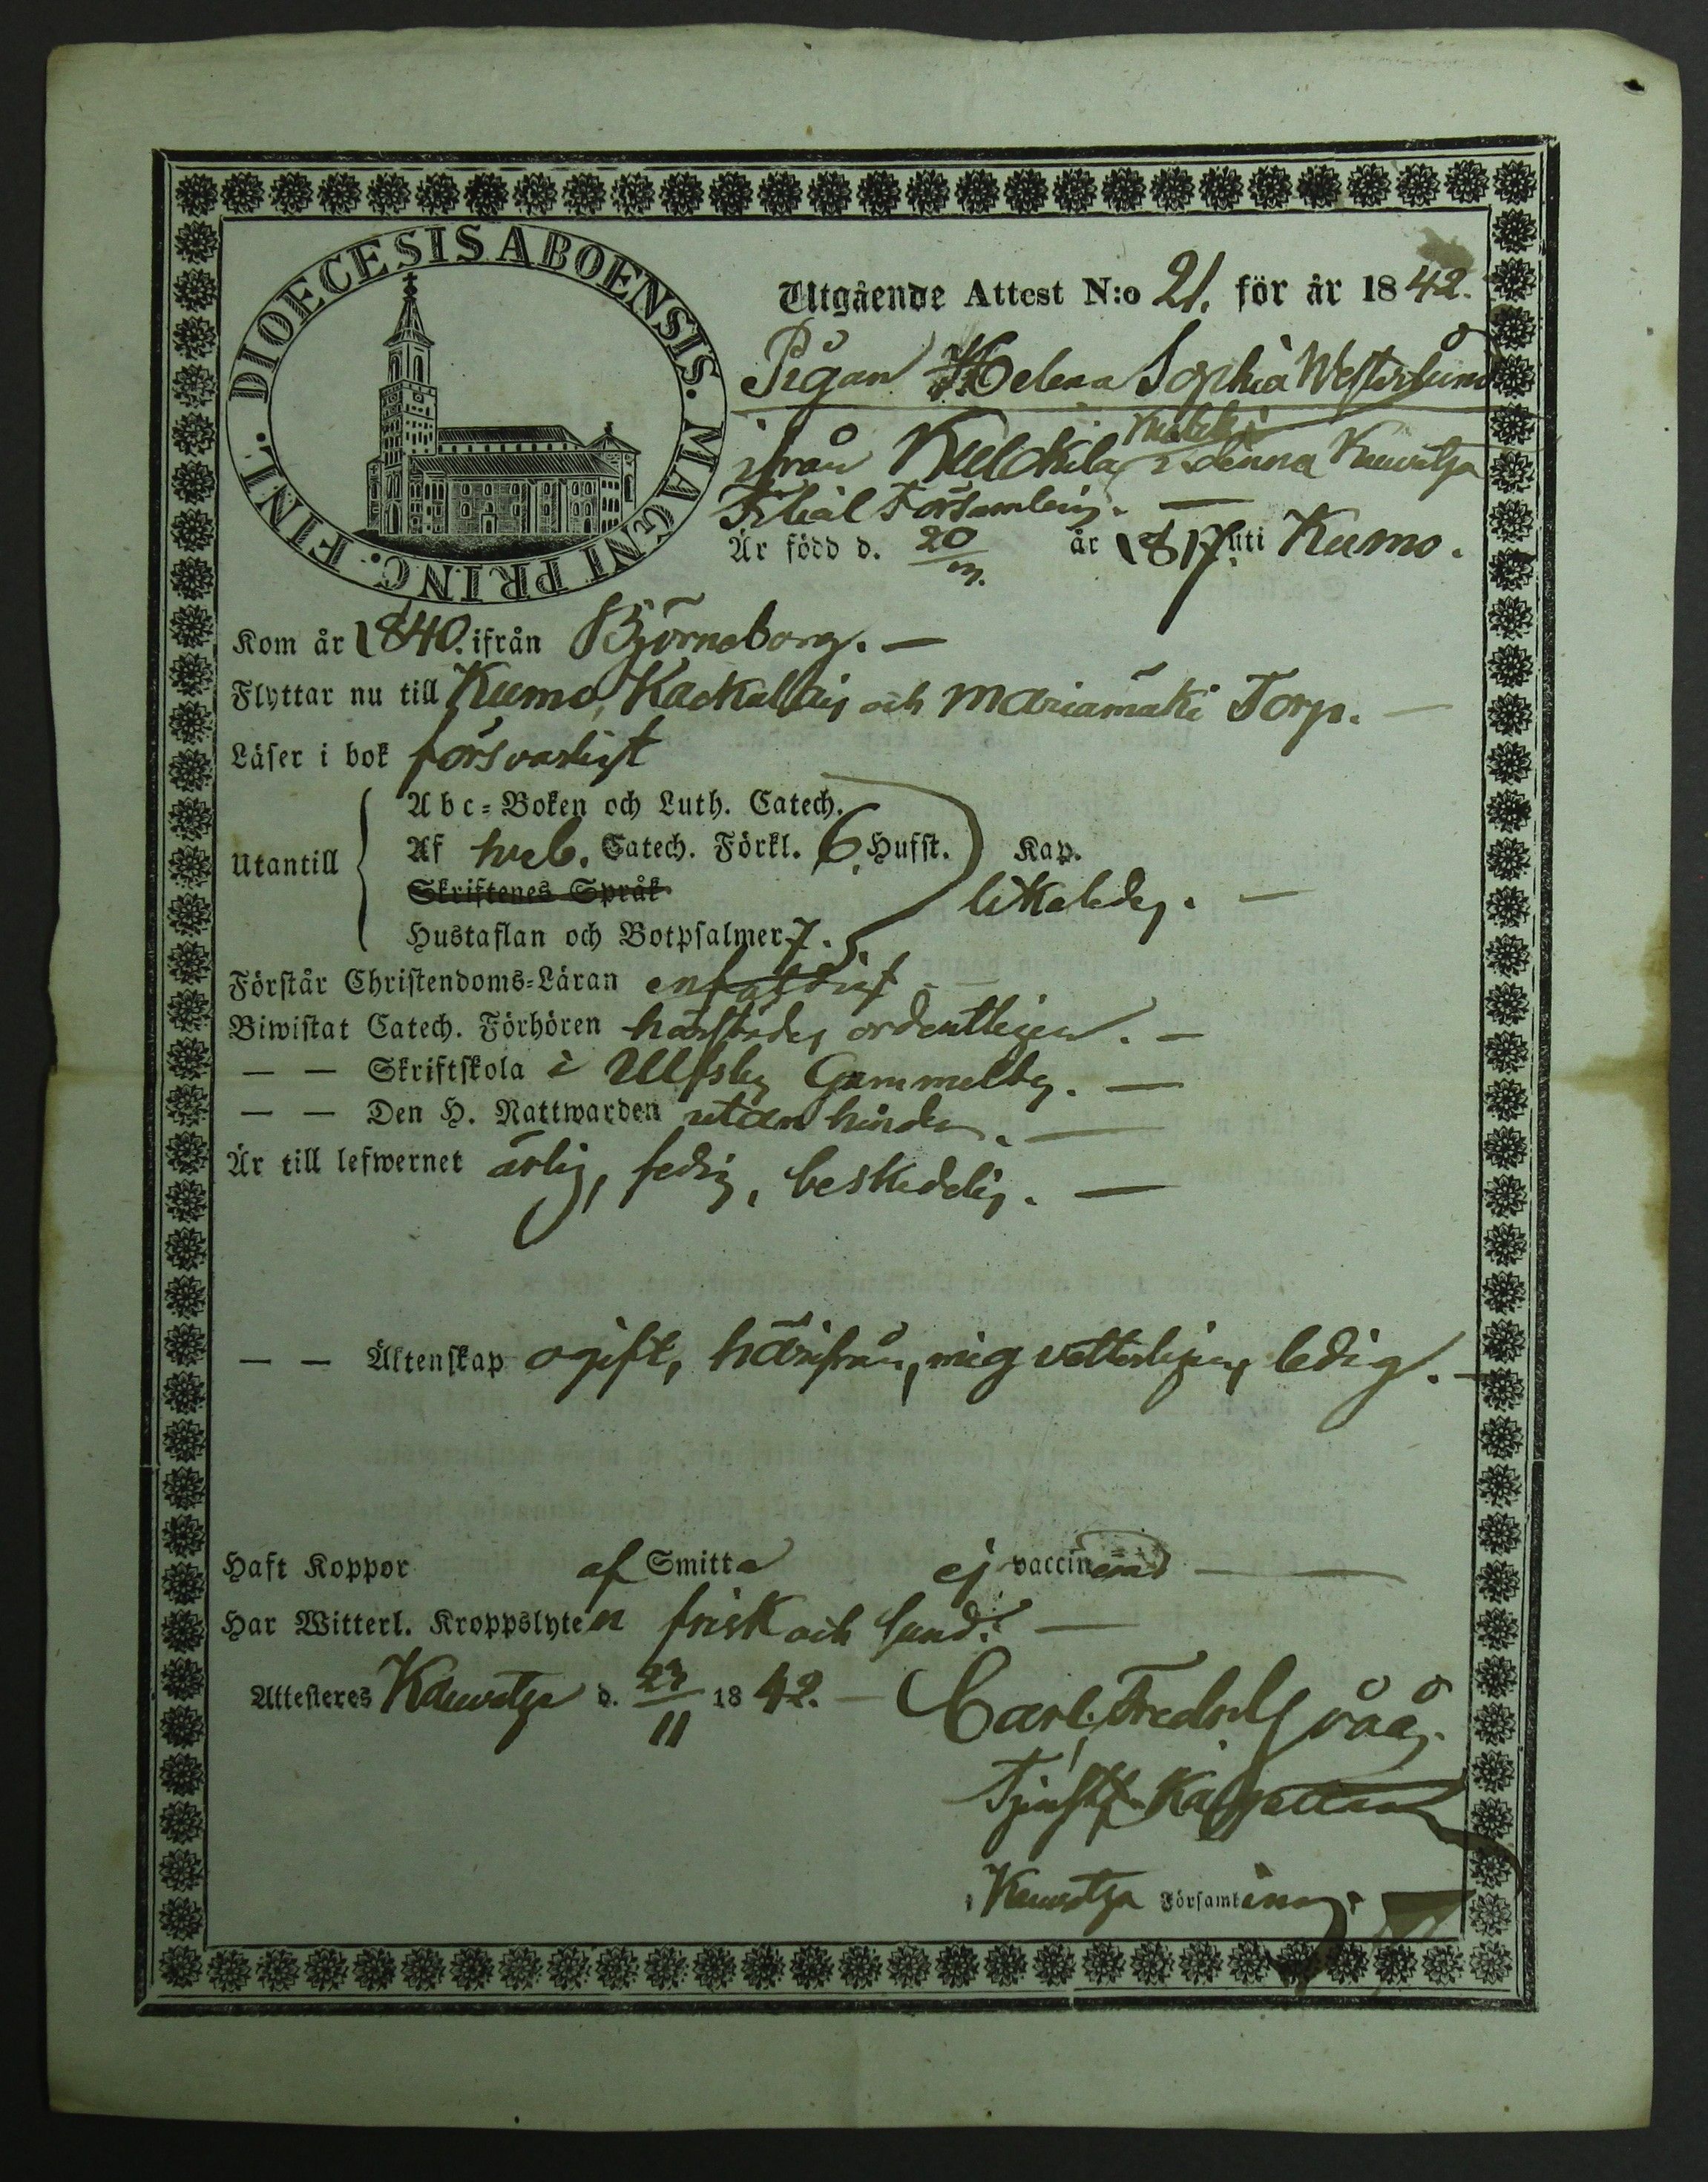 DIOECESIS ABOENSIS. MAGNI PRINC. FINL.
Utgående Attest N:o 21. för år 1842.
Pigan Helena Sophia Westerlund
ifrån Kulckila i denna Kauvatsa
Filial Församling. —
Är född d. 20/ år 1817. uti Kumo.
Kom år 1840. ifrån Björneborg. —
Flyttar nu till Kumo, och Mariamäki Torp. —
Läser i bok försvarligt
Utantill
Abc-Boken och Luth. Catech.
Af Catech. Förkl. 6. Hufst. Kap.
Skriftenes Språk
likaledes. —
Hustaflan och Botpsalmer 7.
Förstår Christendoms-Läran enfaldigt
Biwistat Catech. Förhören härstädes ordentligen. —
— — Skriftskola i Ulfsby Gammelby. —
— — Den H. Nattwarden utan hinder. —
Är till lefwernet ärlig, sedig, beskedelig. —
— — Äktenskap ogift, härifrån, mig vetterligen, ledig. —
Haft Koppor af Smitta ej vaccinerad —
Har Witterl. Kroppslyten frisk och sund. —
Attesteres Kauvatsa d. 23/11 1842. — Carl Fredr.
Kapellan
i Kauvatsa Församling.